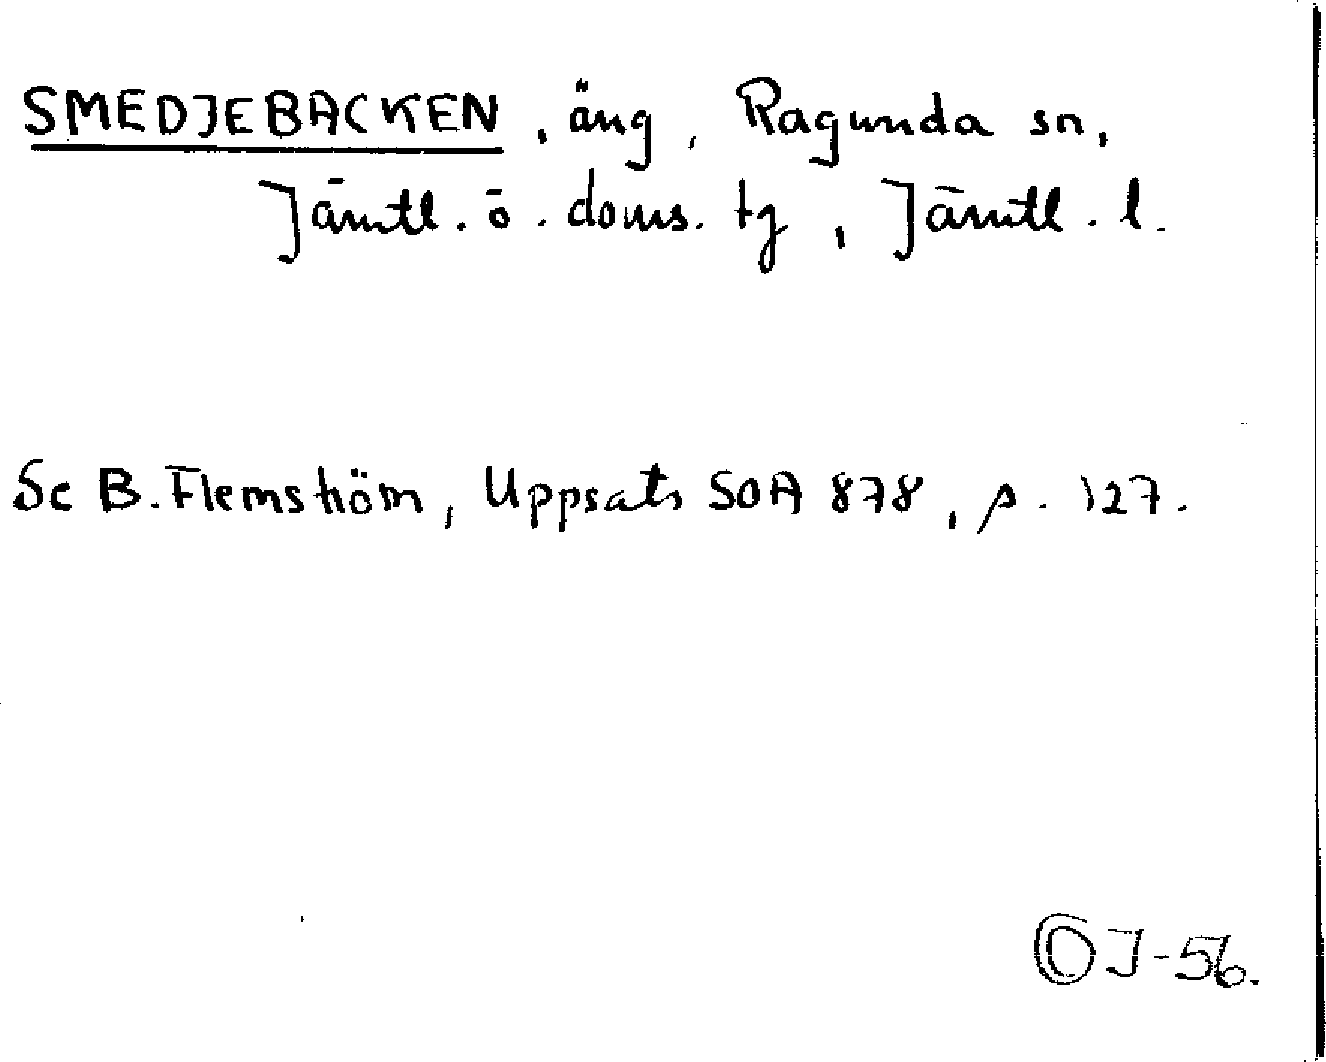 SMEDJEBACKEN, äng, Ragunda sn,
Jämtl. ö. doms. tg, Jämtl. l.
Se B. Flemström, Uppsats SOA 878, p. 127.
OJ-56.